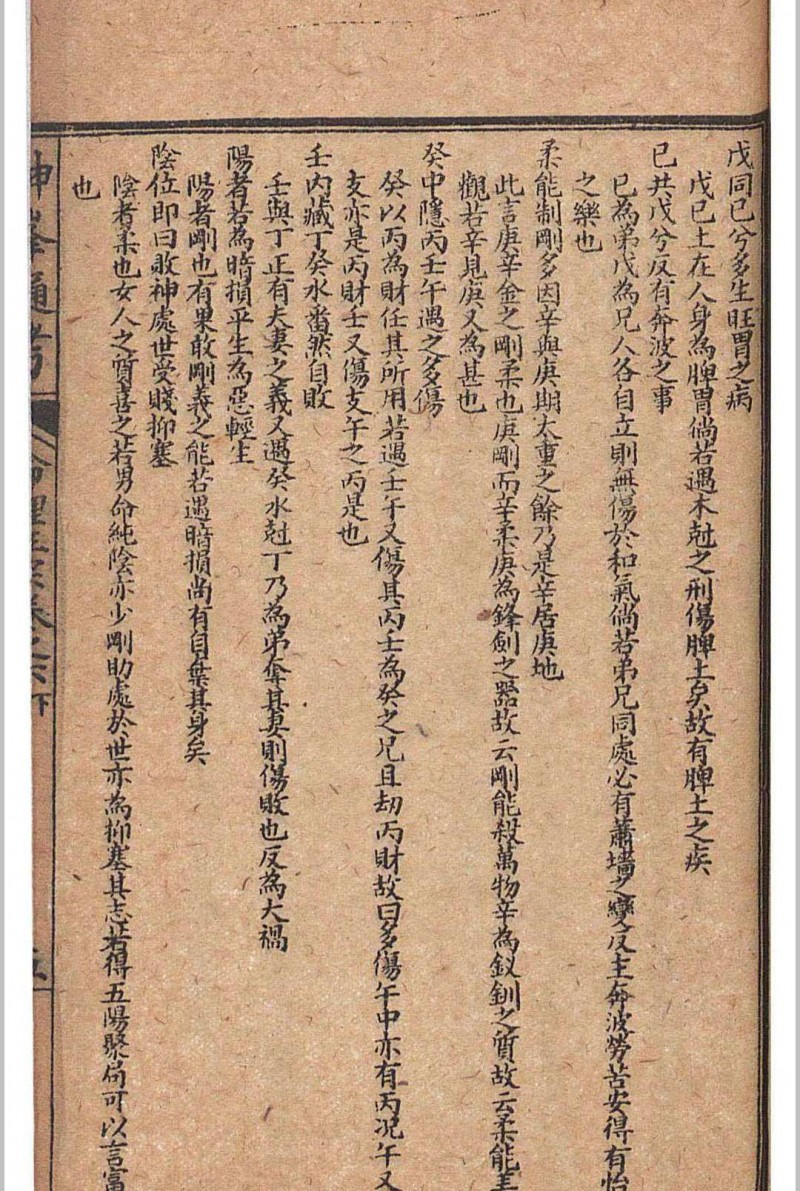 戊同已兮多生旺胃之病
戊已土在人身為脾胃倘若遇木尅之刑傷脾土矣故有脾土之疾
已共戊兮反有奔波之事
已為弟戊為兄人各自立則無傷於和氣倘若弟兄同處必有蕭墻之變反主奔波勞苦安得有怡
之樂也
柔能制剛多因辛與庚期太重之餘乃是辛居庚地
此言庚辛金之剛柔也庚剛而辛柔庚為鋒劍之器故云剛能殺萬物辛為釵釧之質故云柔能
觀若辛見庚又為甚也
癸中隱丙壬午遇之多傷
癸以丙為財任其所用若遇壬午又傷其丙壬為癸之兄且刼丙財故曰多傷午中亦有丙况午又
支亦是丙財壬又傷支午之丙是也
壬内藏丁癸水畨然自敗
壬與丁正有夫妻之義又遇癸水尅丁乃為弟奪其妻則傷敗也反為大禍
陽者若為暗損平生為惡輕生
陽者剛也有果敢剛義之能若遇暗損尚有自棄其身矣
陰位即曰敗神處世受賤抑塞
陰者柔也女人之質喜之若男命純陰亦少剛助處於世亦為抑塞其志若得五陽聚局可以言富
也
神峯通考 命理正宗卷之六下 五